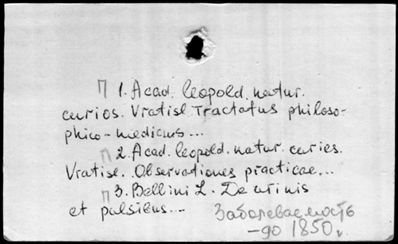 П 1. Acad. leopold. natur.
curios. Vratisl Tractatus philoso-
phico-medicus...
П 2. Acad. leopold. natur. curies.
Vratisl. Observationes practicae...
П 3. Bellini L. De urinis
et pulsibus...
Заболеваемость
- до 1850 г.